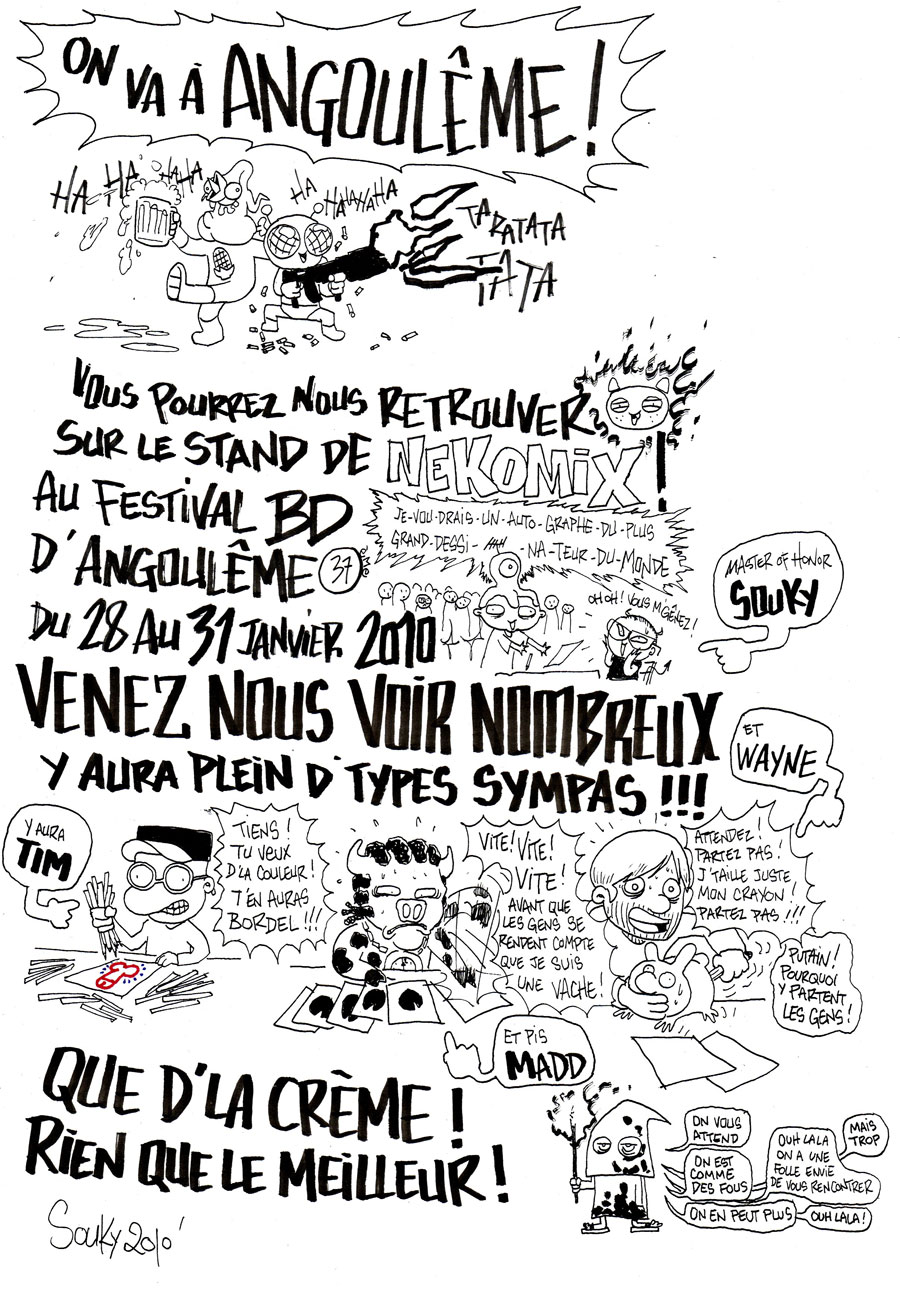 ON VA À ANGOULÊME !
HA HA HAHA
HA HAHAHAHA
TARATATA
TATA
VOUS POURREZ NOUS RETROUVER
SUR LE STAND DE NEKOMIX !
AU FESTIVAL BD
D'ANGOULÊME 37
DU 28 AU 31 JANVIER 2010
JE-VOU-DRAIS-UN-AUTO-GRAPHE-DU-PLUS
GRAND-DESSI- HAH -NA-TEUR-DU-MONDE
OH OH ! VOUS M'GÊNEZ !
MASTER OF HONOR
SOUKY
VENEZ NOUS VOIR NOMBREUX
Y AURA PLEIN D'TYPES SYMPAS !!!
ET
WAYNE
Y AURA
TIM
TIENS !
TU VEUX
D'LA COULEUR !
T'EN AURAS
BORDEL !!!
VITE ! VITE !
VITE !
AVANT QUE
LES GENS SE
RENDENT COMPTE
QUE JE SUIS
UNE VACHE !
ATTENDEZ !
PARTEZ PAS !
J'TAILLE JUSTE
MON CRAYON !
PARTEZ PAS !!!
PUTAIN !
POURQUOI
Y PARTENT
LES GENS !
ET PIS
MADD
QUE D'LA CRÈME !
RIEN QUE LE MEILLEUR !
ON VOUS
ATTEND
ON EST
COMME
DES FOUS
OUH LALA
ON A UNE
FOLLE ENVIE
DE VOUS RENCONTRER
MAIS
TROP
ON EN PEUT PLUS
OUH LALA !
SOUKY 2010